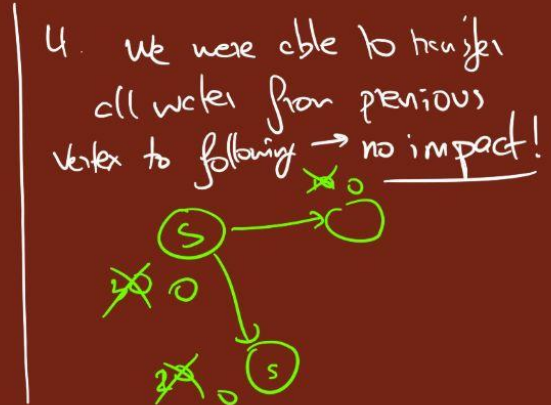 4. we were able to transfer
all water from previous
vertex to following → no impact!
0
S
30 0
S
20 0